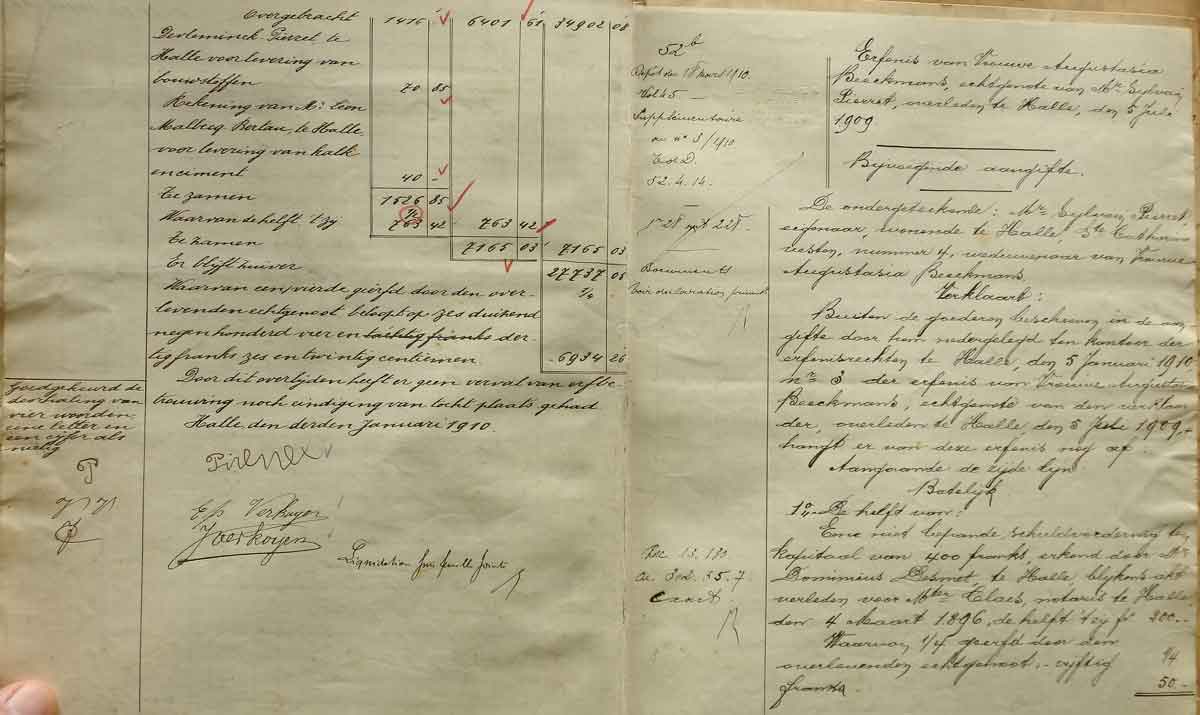 Overgebracht 1416 6401 61 34902 08
Pierret, te
Halle voor levering van
bouwstoffen 70 85
Rekening van Mr Leon
Malbecq Bertau, te Halle
voor levering van kalk
en ciment 40 -
Te zamen 1526 85
Waarvan de helft 't zij 1/2 763 42 763 42
Te zamen 7165 03 7165 03
Er blijft zuiver 27737 05
Waarvan een vierde geërfd door den over- 1/4
levenden echtgenoot beloopt op zes duizend
negen honderd vier en tachtig franks der-
tig franks zes en twintig centiemen 6934 26
Door dit overlijden heeft er geen verval van erfbe-
trouwing noch eindiging van tocht plaats gehad
Halle, den derden Januari 1910.
Goedgekeurd de
doorhaling van
vier woorden
eene letter en
een cijfer als
nietig
P
Pierret
Verhoyen
Liquidation sur feuille jointe
52b
Dépôt du 18 mars 1910.
Vol 45 -
Supplémentaire
au no 3/1910
52.4.14.
Documents
Voir déclaration primit
Rec. 13.180.
35.7
Exact.
Erfenis van Vrouwe Augustasia
Beeckmans, echtgenote van Mr Sylvain
Pierret, overleden te Halle, den 5 Juli
1909
Bijvoegende aangifte.
De ondergeteekende: Mr Sylvain Pierret
eigenaar, wonende te Halle, Ste Catharina
vesten, nummer 4, weduwenaar van Vrouwe
Augustasia Beeckmans
Verklaart:
Buiten de goederen beschreven in de aan
gifte door hem nedergelegd ten kantoor der
erfenisrechten te Halle, den 5 Januari 1910
nr 3 der erfenis van Vrouwe Augustasia
Beeckmans, echtgenote van den verklaar
der, overleden te Halle, den 5 Juli 1909 -
hangt er van deze erfenis nog af.
Aangaande de zijde lijn
Batelijk
1° De helft van:
Eene niet betaande schuldvordering ten
kapitaal van 400 franks, erkend door Mr
Dominicus Desmet, te Halle, blijkens akt
verleden voor Mter Claes, notaris te Halle
den 4 Maart 1896, de helft 't zij fr 200.-
Waarvan 1/4 geërfd door den
overlevenden echtgenoot - vijftig 1/4
franks 50.-